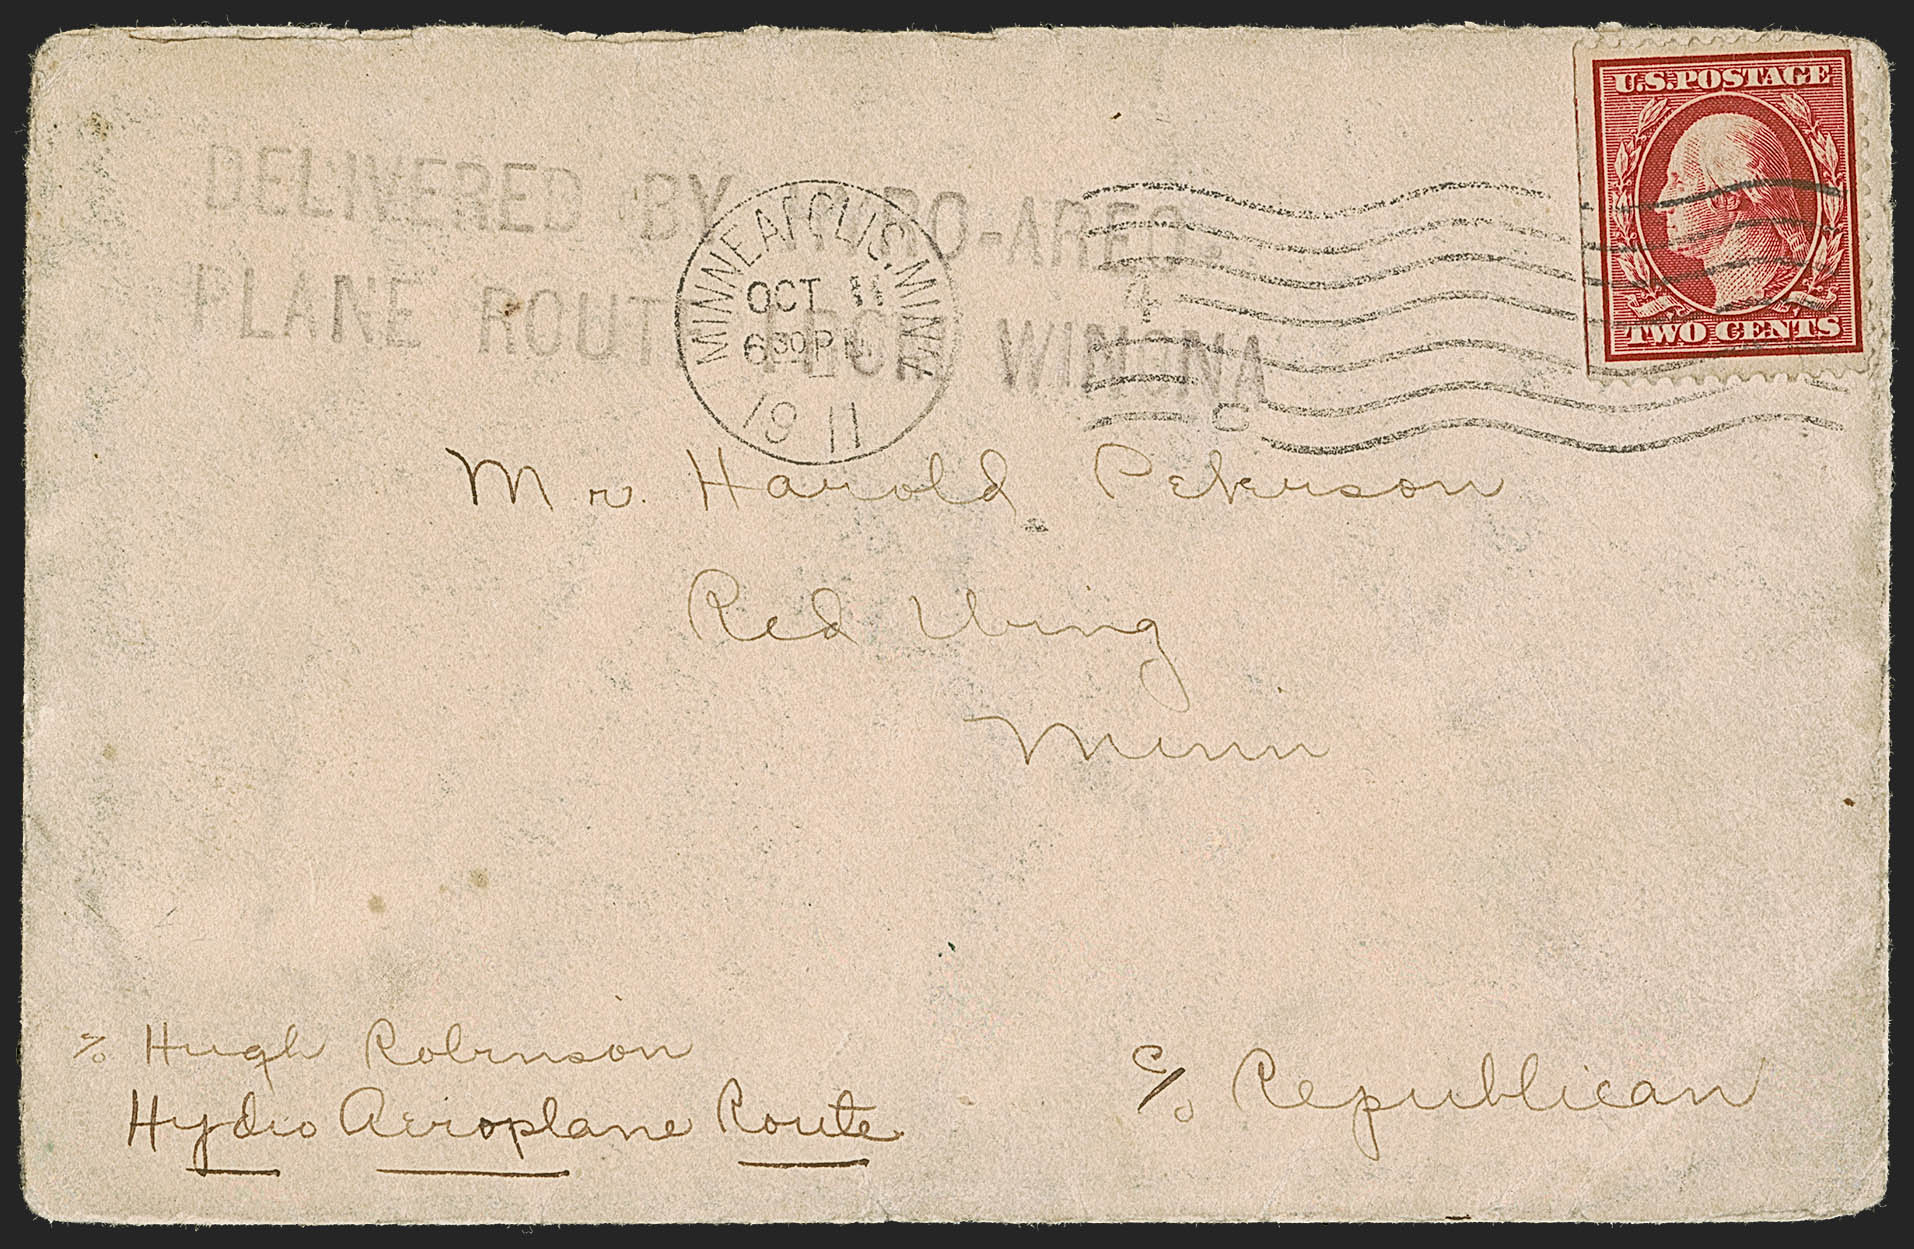 U.S. POSTAGE
TWO CENTS
DELIVERED BY HYDRO-AREO-
PLANE ROUTE FROM WINONA
MINNEAPOLIS, MINN.
OCT 11
630 PM
1911
4
C
Mr. Harold Peterson
Red Wing
Minn
c/o Hugh Robinson
Hydro Aeroplane Route
c/o Republican